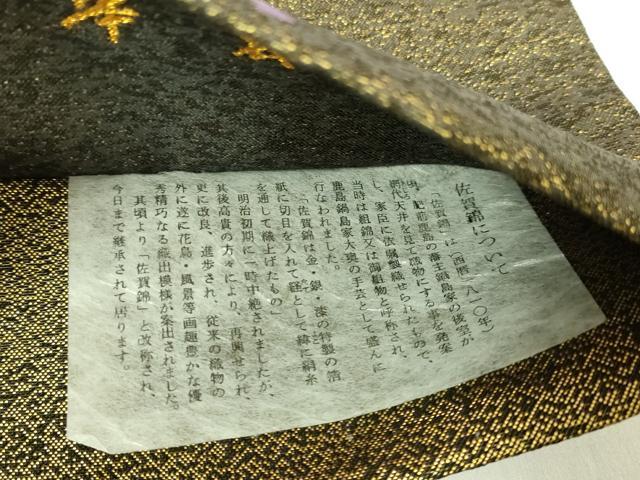 佐賀錦について
「佐賀錦」は（西暦一八一〇年）
肥前鹿島の藩主鍋島家の後室が
網代天井を見て織物にする事を発案
し、家臣に依頼製織せられたもので、
当時は組錦又は御組物と呼称され、
鹿島鍋島家大奥の手芸として盛んに
行なわれました。
「佐賀錦は金・銀・漆の特製の箔
紙に切目を入れて経として緯に絹糸
を通して織上げたもの」
明治初期に一時中絶されましたが、
其後高貴の方々により、再興せられ、
更に改良、進歩され、従来の織物の
外に遂に花鳥・風景等画趣豊かな優
秀精巧なる織出模様が案出されました。
其頃より「佐賀錦」と改称され、
今日まで継承されて居ります。